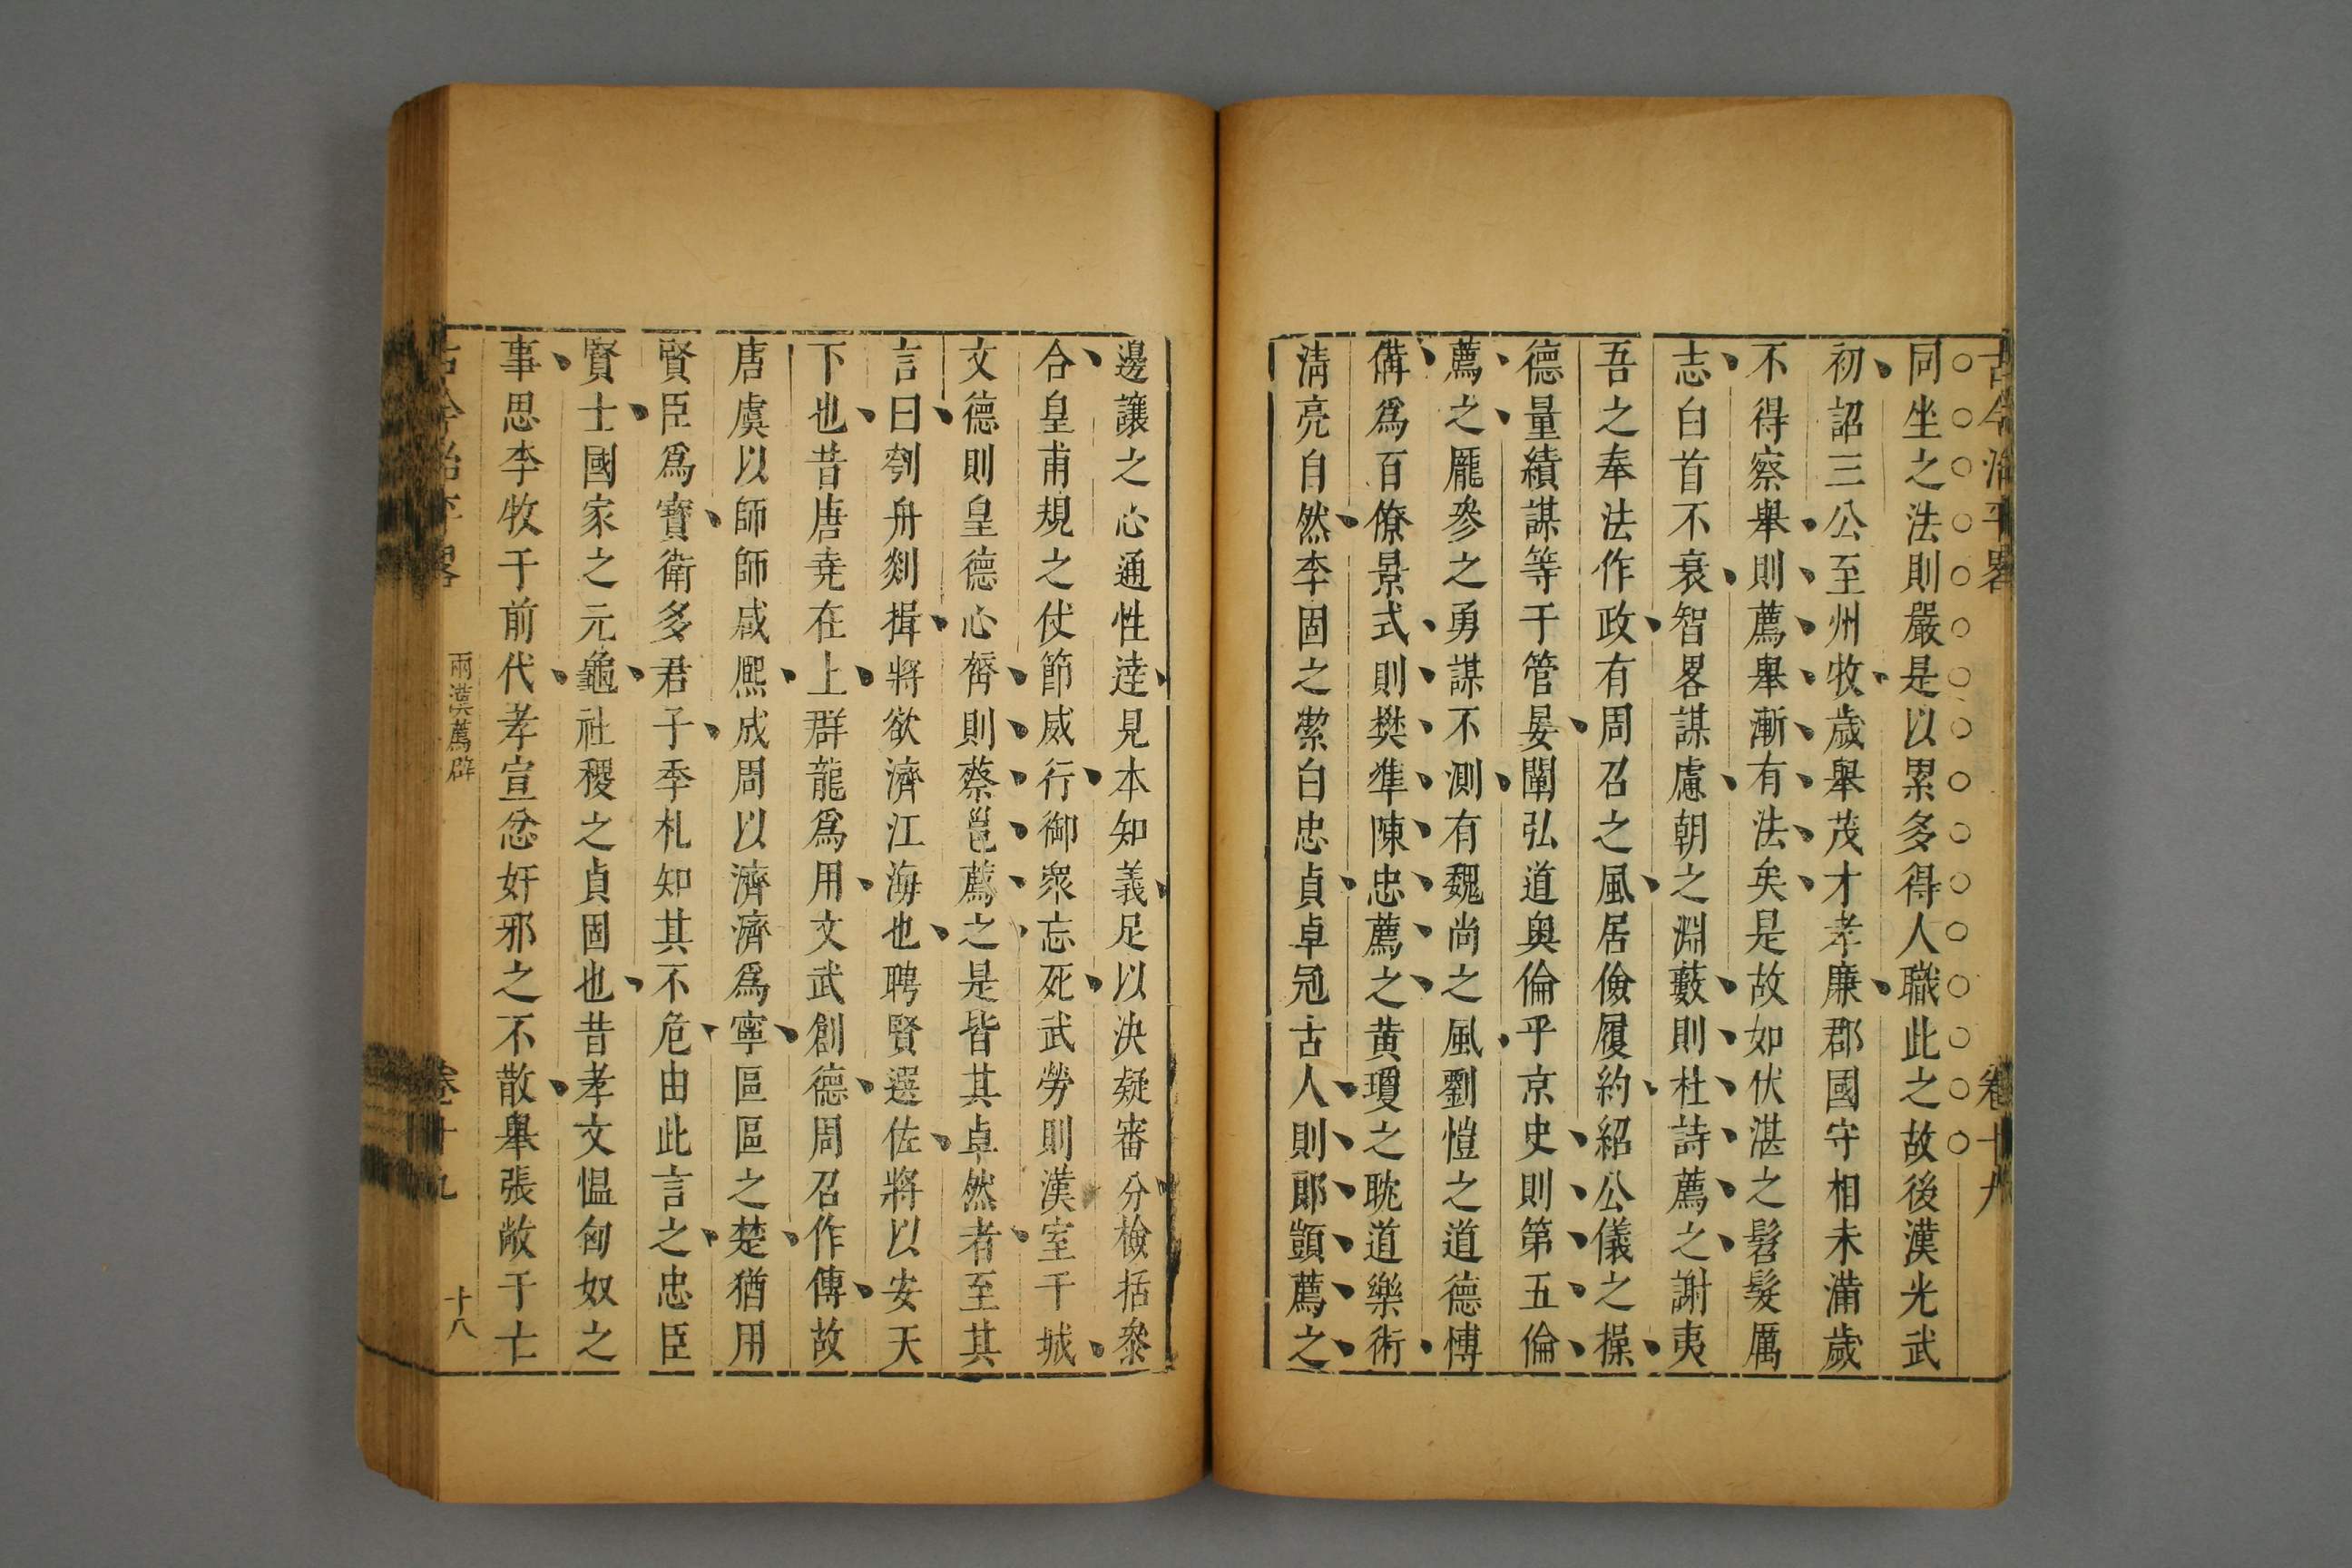 古今治平畧 卷十九
同坐之法則嚴是以累多得人職此之故後漢光武
初詔三公至州牧歲舉茂才孝廉郡國守相未滿歲
不得察舉則薦舉漸有法矣是故如伏湛之髫髮厲
志白首不衰智畧謀慮朝之淵藪則杜詩薦之謝夷
吾之奉法作政有周召之風居儉履約紹公儀之操
德量績謀等于管晏闡弘道奥倫乎京史則第五倫
薦之龎參之勇謀不測有魏尚之風劉愷之道德愽
備爲百僚景式則樊準陳忠薦之黄瓊之耽道樂術
清亮自然李固之㓗白忠貞卓冠古人則郎顗薦之
邊讓之心通性逹見本知義足以決疑審分檢括叅
合皇甫規之仗節威行御衆忘死武勞則漢室干城
文德則皇德心膂則蔡邕薦之是皆其卓然者至其
言曰刳舟剡揖將欲濟江海也聘賢選佐將以安天
下也昔唐堯在上群龍爲用文武創德周召作傳故
唐虞以師師咸熈成周以濟濟爲寧區區之楚猶用
賢臣爲寶衛多君子季札知其不危由此言之忠臣
賢士國家之元龜社稷之貞固也昔孝文愠匈奴之
事思李牧于前代孝宣忿奸邪之不散舉張敞于亡
古今治平畧 兩漢薦辟 卷十九 十八